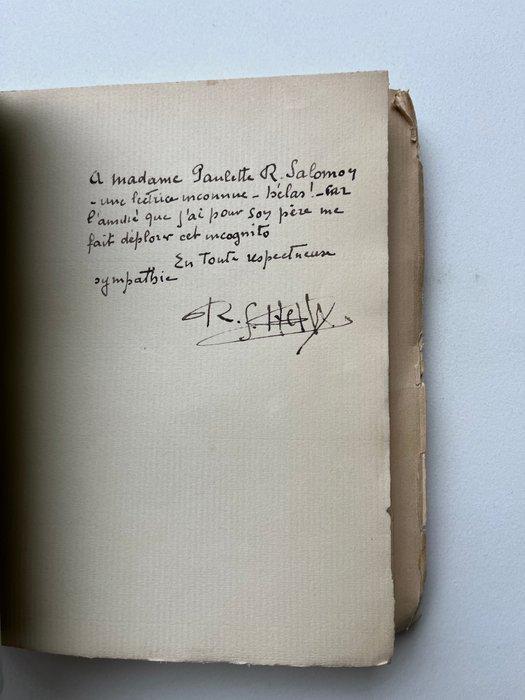 A madame Paulette R. Salomon
- une lectrice inconnue - hélas! - car
l'amitié que j'ai pour son père me
fait déplorer cet incognito
En toute respectueuse
sympathie
R.